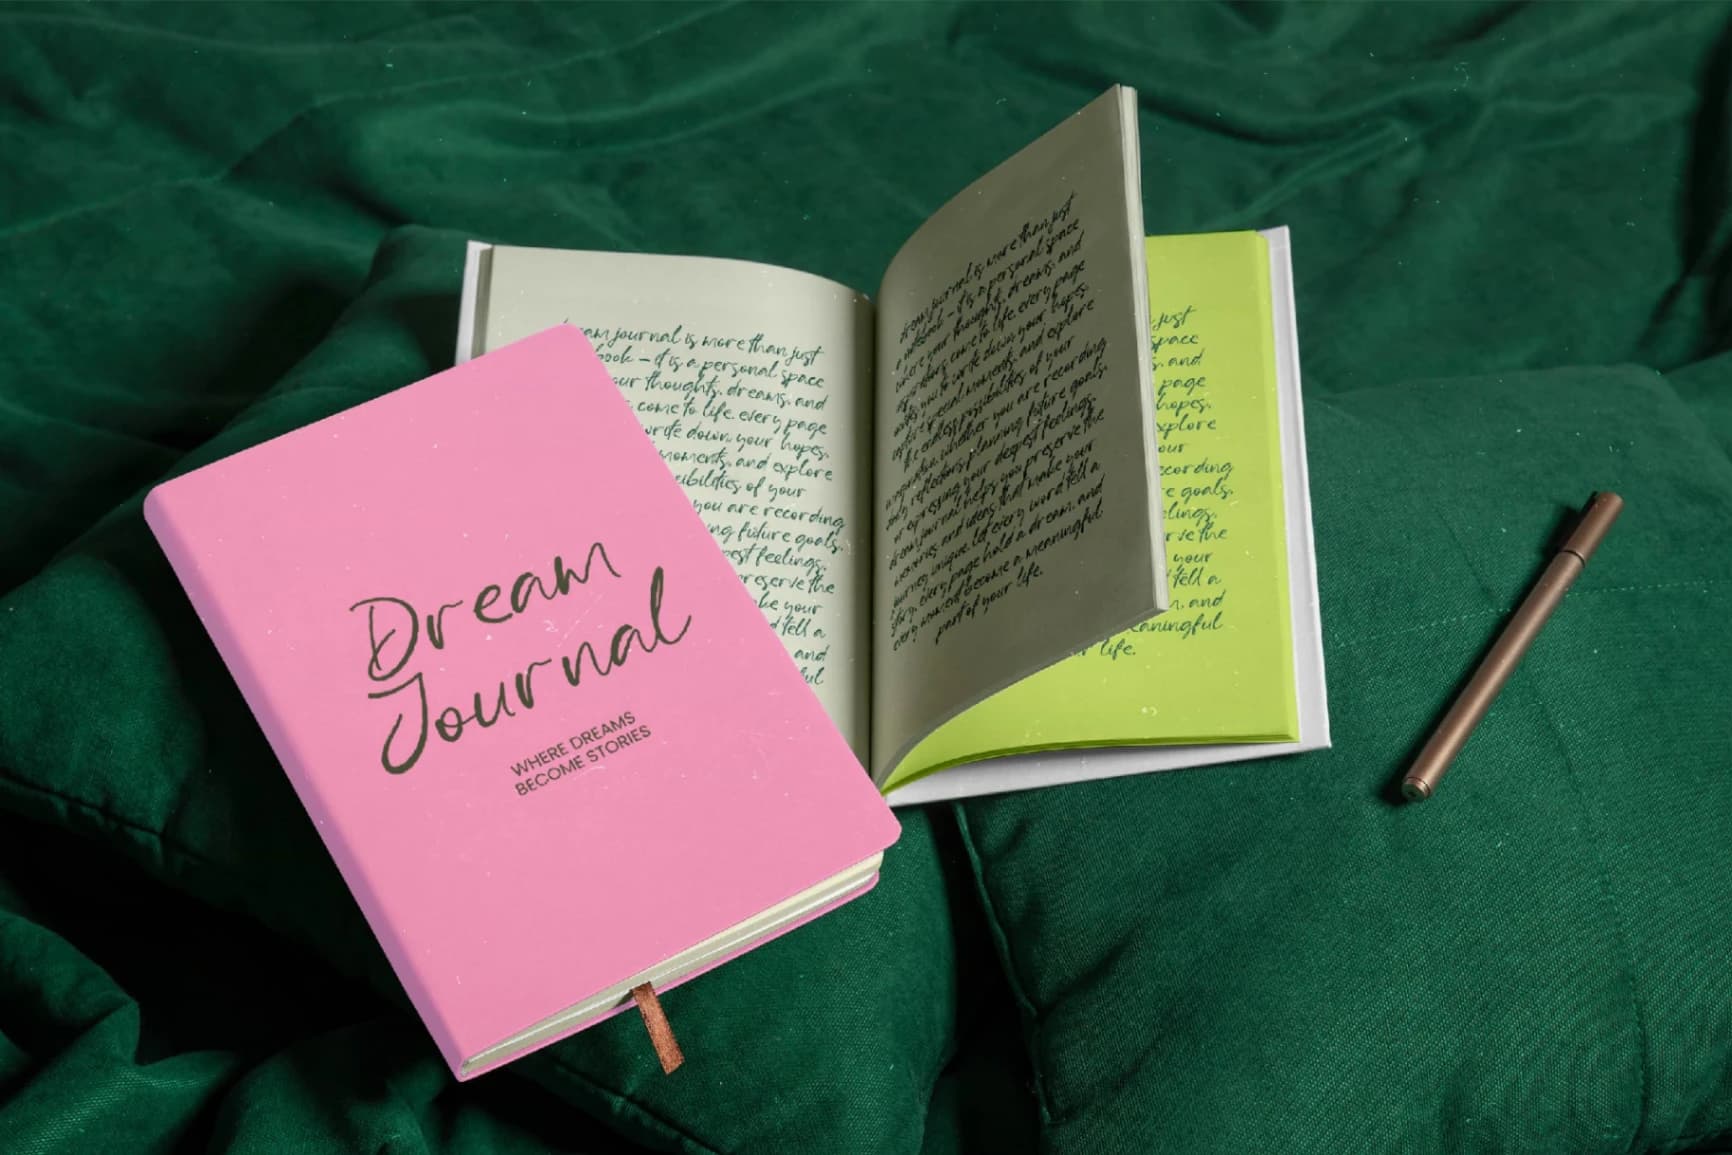 Dream
Journal
WHERE DREAMS
BECOME STORIES
ream journal is more than just
book – it is a personal space
our thoughts, dreams, and
come to life. every page
write down your hopes,
moments, and explore
sibilities of your
you are recording
ng future goals,
pest feelings,
reserve the
ke your
tell a
and
ful
dream journal is more than just
a notebook – it is a personal space
where your thoughts, dreams, and
inspirations come to life. every page
invites you to write down your hopes,
capture special moments, and explore
the endless possibilities of your
imagination. whether you are recording
daily reflections, planning future goals,
or expressing your deepest feelings,
dream journal helps you preserve the
memories and ideas that make your
journey unique. let every word tell a
story, every page hold a dream, and
every moment become a meaningful
part of your life.
just
space
s, and
page
hopes,
xplore
our
ecording
re goals,
elings,
rve the
your
tell a
m, and
eaningful
r life.